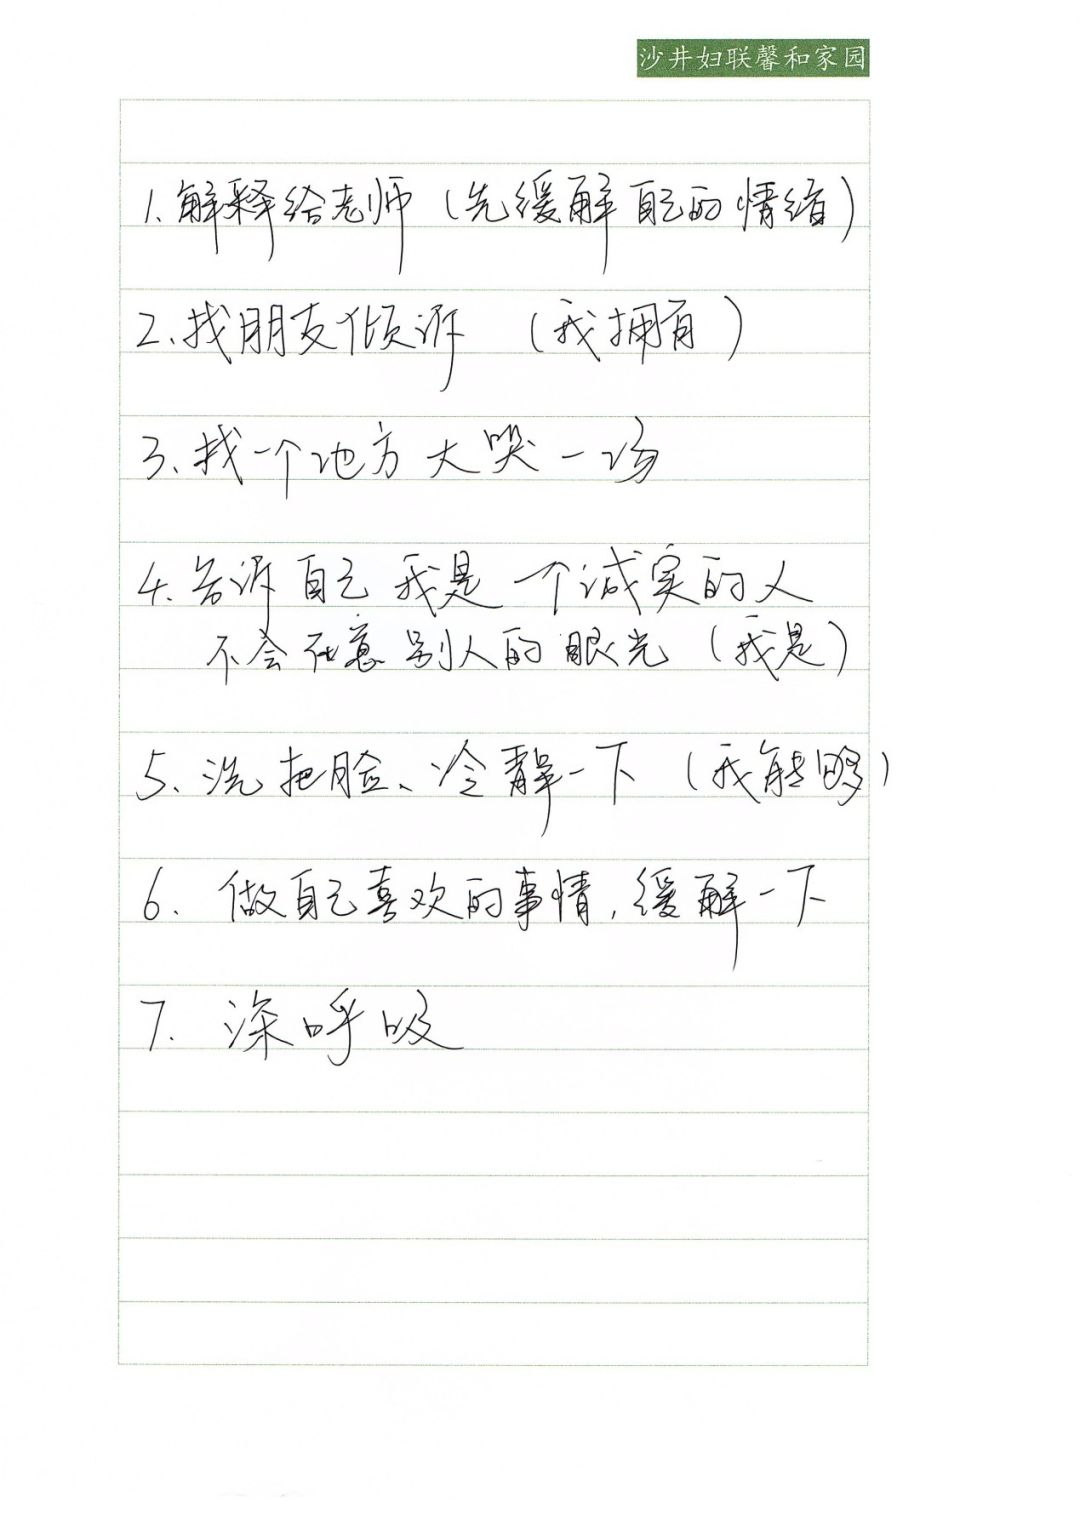 沙井妇联馨和家园
1.解释给老师（先缓解自己的情绪）
2.找朋友倾诉（我拥有）
3、找一个地方大哭一场
4.告诉自己我是一个诚实的人
不会在意别人的眼光（我是）
5、洗把脸、冷静一下（我能够）
6. 做自己喜欢的事情,缓解一下
7. 深呼吸